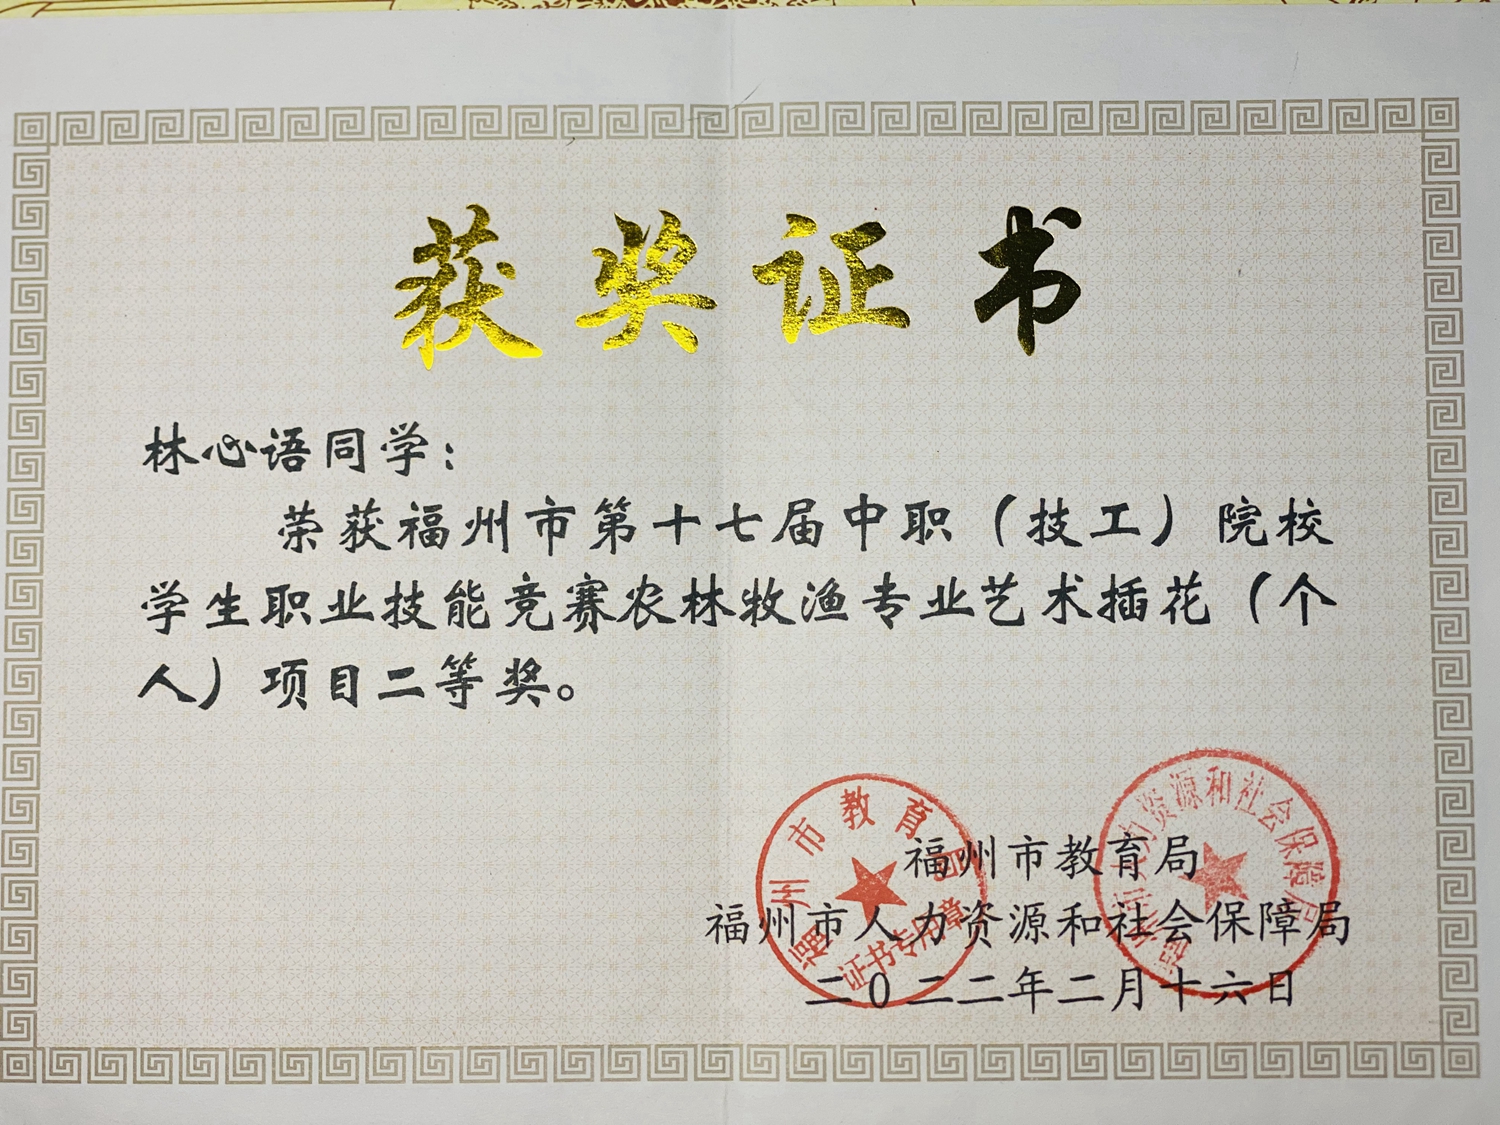 获奖证书
林心语同学：
荣获福州市第十七届中职（技工）院校
学生职业技能竞赛农林牧渔专业艺术插花（个
人）项目二等奖。
福州市教育局
福州市人力资源和社会保障局
二〇二二年二月十六日
福州市教育局
证书专用章
福州市人力资源和社会保障局